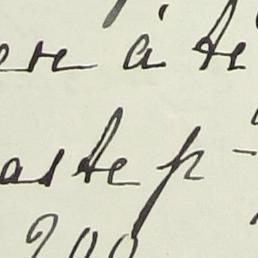 ere à te
aste p-
200